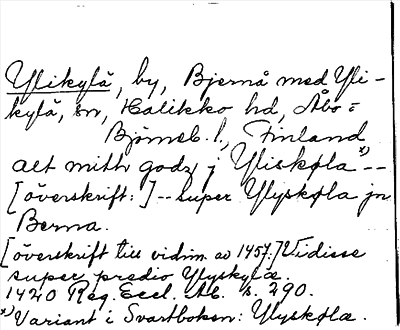 Ylikylä, by, Bjernå med Yli-
kylä, sn, Halikko hd, Åbo=
Björneb. l., Finland
alt mitth godz j Yliskøla x) --
[överskrift:] -- super Ylyskøla jn
Berna.
[överskrift till vidim. av 1457:] Vidisse
super predio Ylyskylæ.
1420 Reg. Eccl. Ab. s. 290.
x) Variant i Svartboken: Ylyskøla.